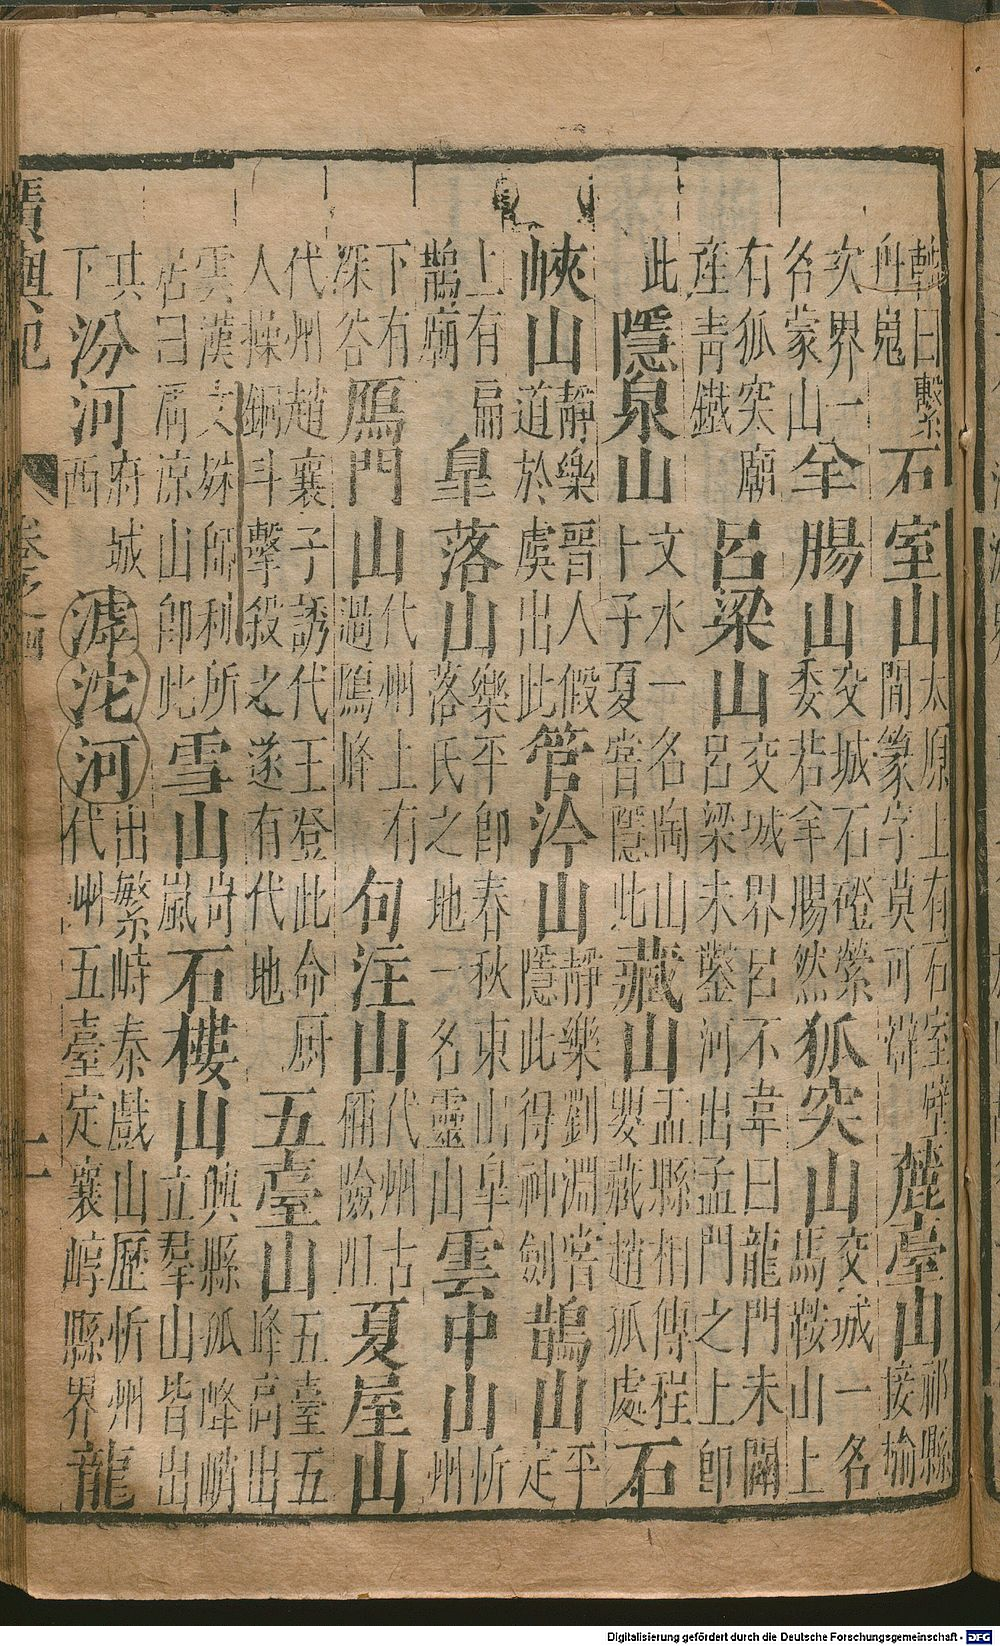 乾曰繫舟嵬石室山太原上有石室壁間篆字莫可辯麓臺山祁縣接榆
次界一名蒙山羊腸山交城石磴縈委若羊腸然狐突山交城一名馬鞍山上
有狐突廟產青鐵呂梁山交城界呂不韋曰龍門未闢呂梁未鑿河出孟門之上即
此隱泉山文水一名陶山卜子夏嘗隱此藏山盂縣相傳程嬰藏趙孤處石
峽山靜樂晉人假道於虞出此管涔山靜樂劉淵嘗隱此得神劍鵲山平定
上有扁鵲廟皐落山樂平即春秋東山皐落氏之地一名靈山雲中山忻州
下有深谷鴈門山代州上有過鴈峰句注山代州古稱險阻夏屋山
代州趙襄子誘代王登此命厨人操銅斗擊殺之遂有代地五臺山五臺五峰高出
雲漢文殊師利所居曰凊涼山即此雪山岢嵐石樓山興縣孤峰峭立羣山皆出
其下汾河府城西滹沱河出繁峙泰戲山歷忻州代州五臺定襄崞縣界龍
廣輿記 卷之四 十一
Digitalisierung gefördert durch die Deutsche Forschungsgemeinschaft - DFG